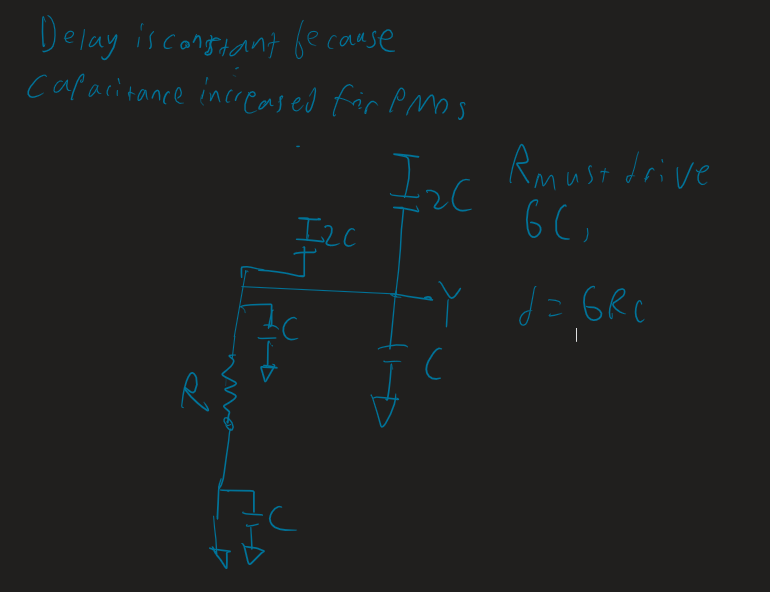 Delay is constant because
Capacitance increased for PMOS
R must drive
6C,
d = 6RC
2C
2C
Y
C
C
R
C